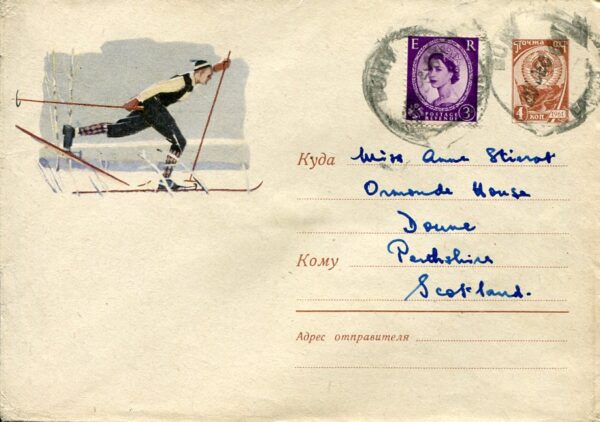 E R
POSTAGE REVENUE
3D
ПОЧТА
4 КОП 1961
Куда Miss Anne Stirrat
Ormonde House
Doune
Кому Perthshire
Scotland.
Адрес отправителя